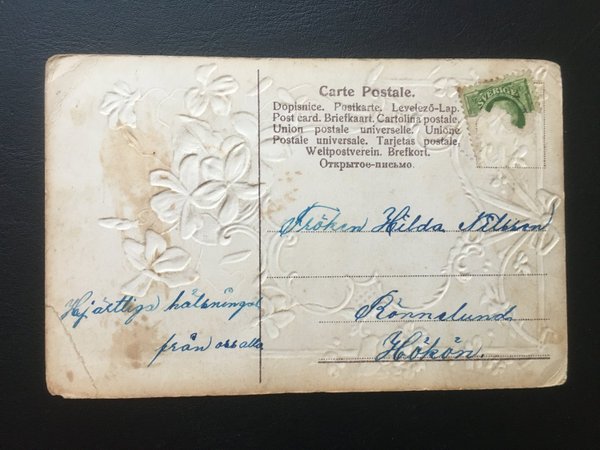 Carte Postale.
Dopisnice. Postkarte. Levelező-Lap.
Post card. Briefkaart. Cartolina postale.
Union postale universelle. Unione
Postale universale. Tarjetas postale,
Weltpostverein. Brefkort.
Открытое-письмо.
SVERIGE
Fröken Hilda Nilsson
Rönnelund
Hökön.
Hjärtliga hälsningar
från oss alla